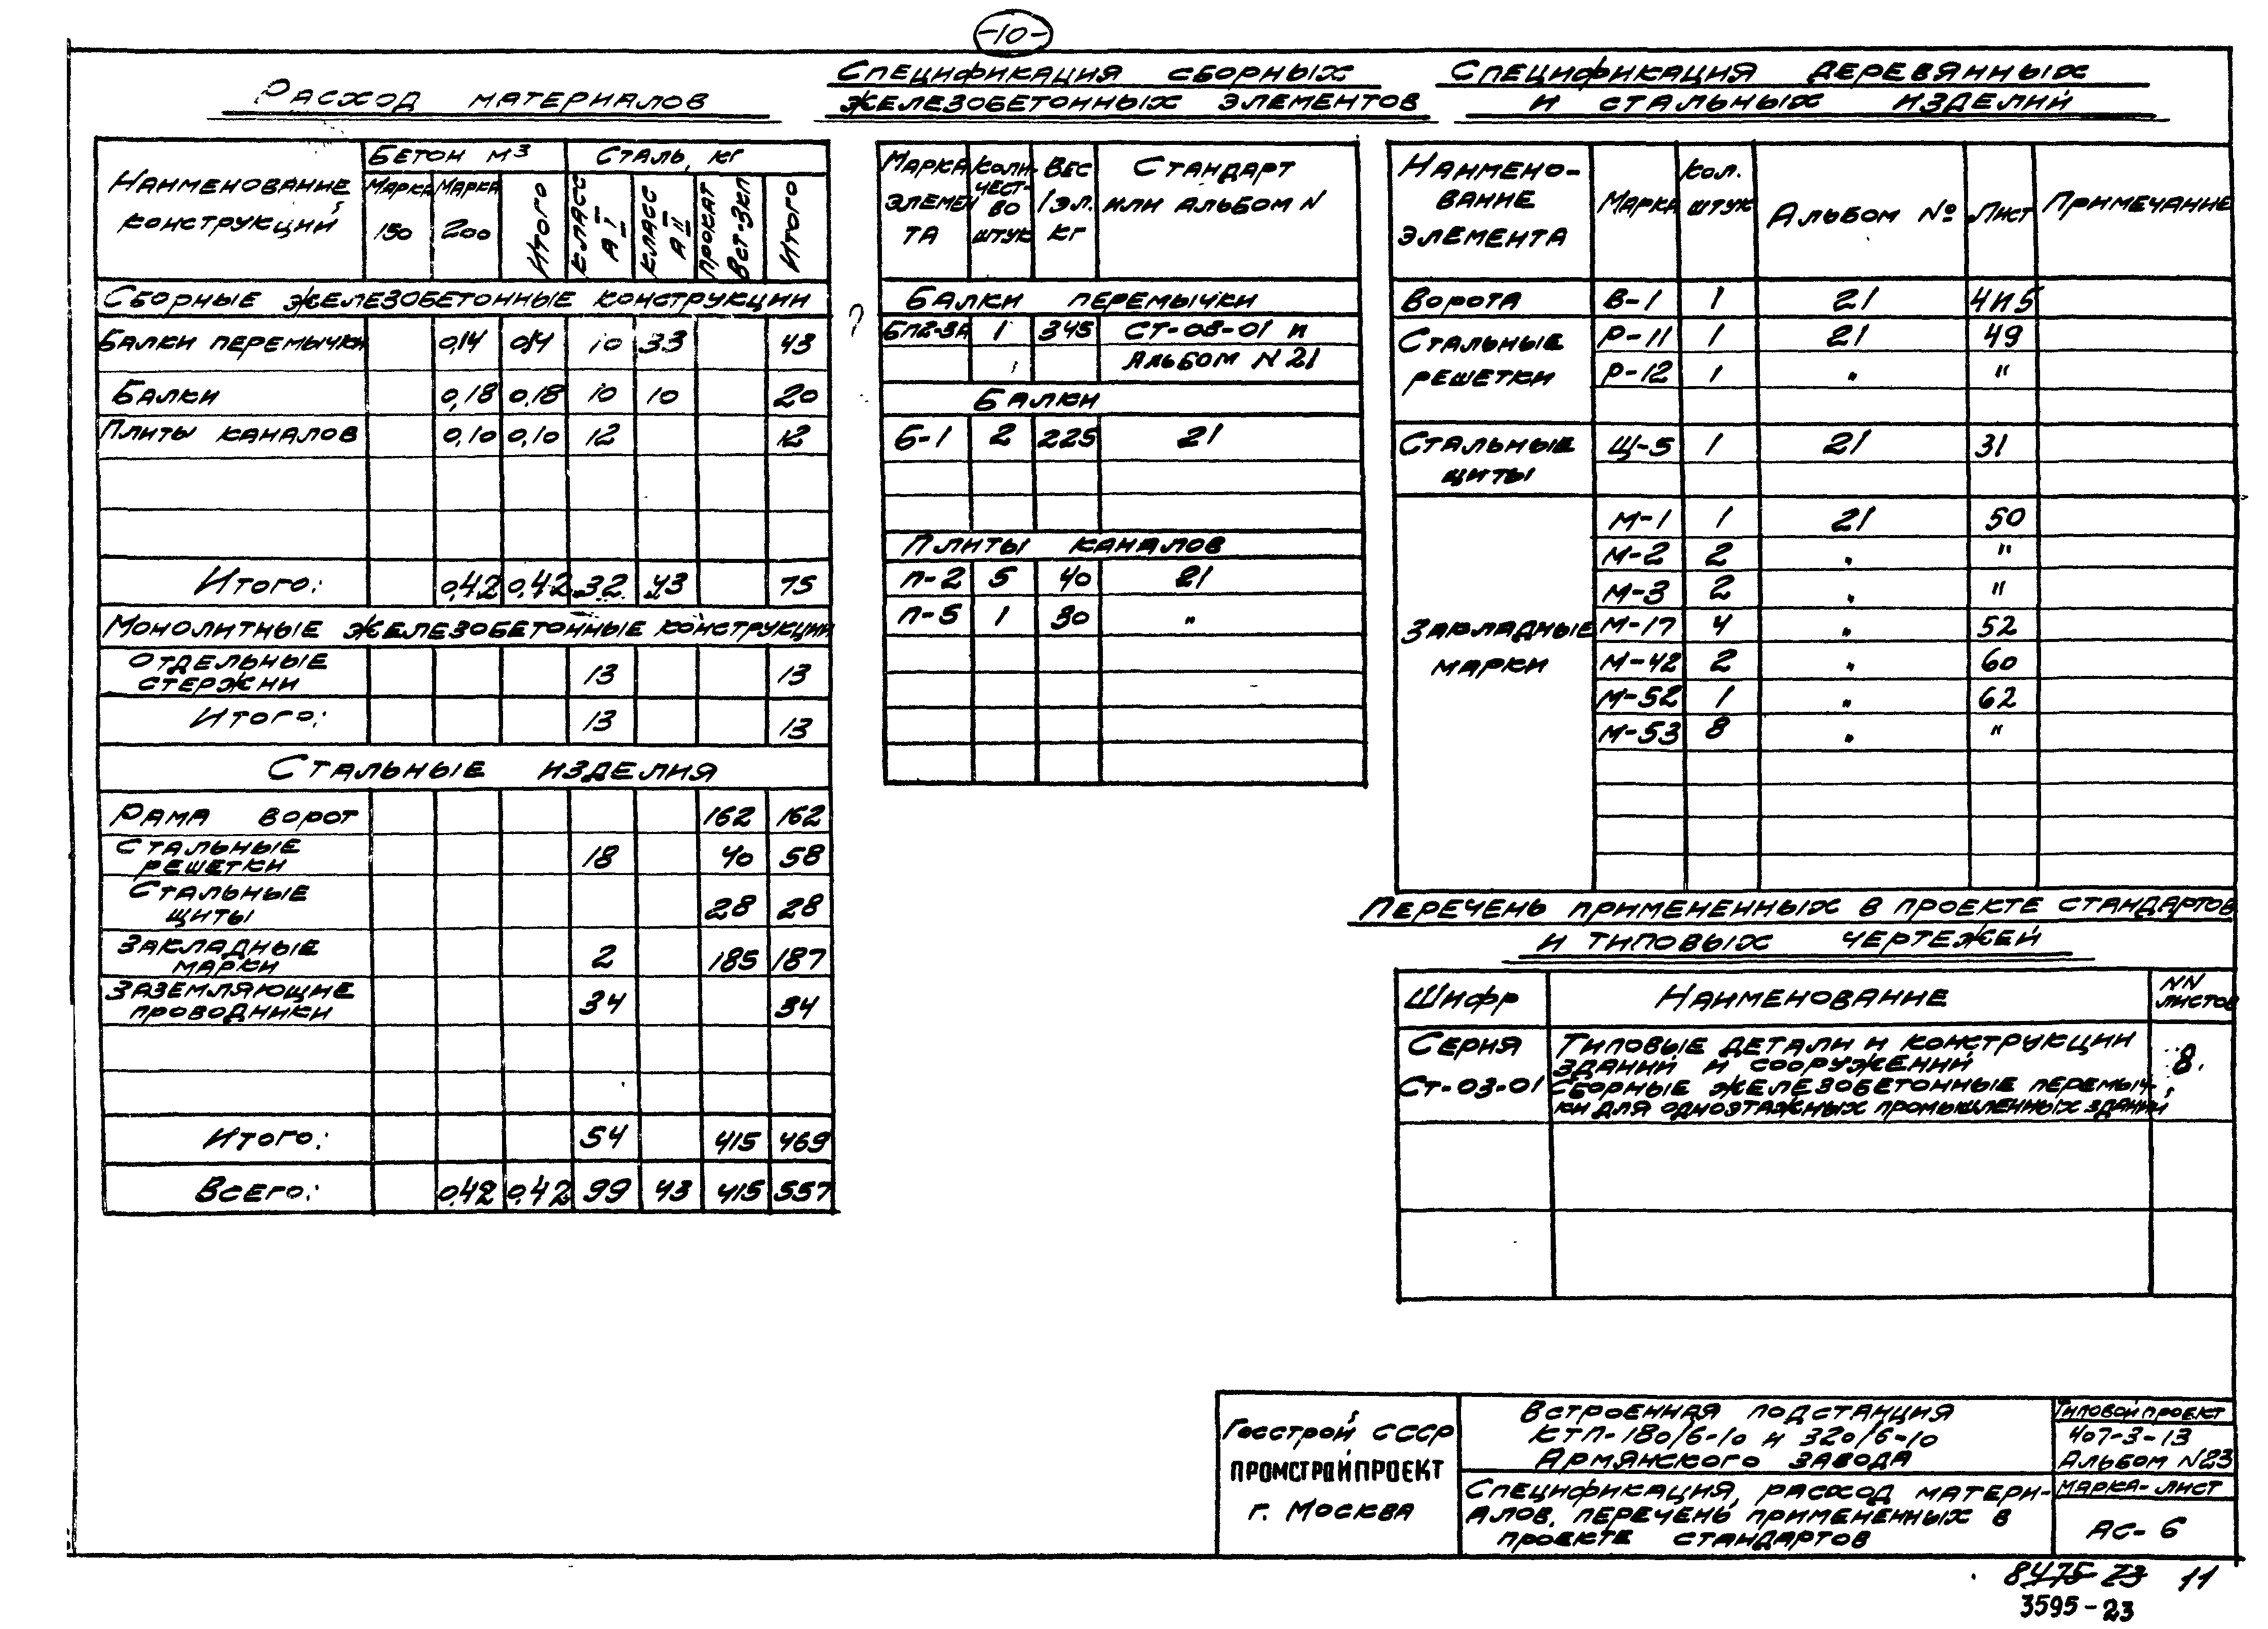 -10-
Расход материалов
Наименование конструкций | Бетон м3 | Сталь, кг
Марка 150 | Марка 200 | Итого | Класс А I | Класс А II | Прокат Вст-3кп | Итого
Сборные железобетонные конструкции
Балки перемычки | 0,14 | 0,14 | 10 | 33 | 43
Балки | 0,18 | 0,18 | 10 | 10 | 20
Плиты каналов | 0,10 | 0,10 | 12 | 12
Итого: | 0,42 | 0,42 | 32 | 43 | 75
Монолитные железобетонные конструкции
Отдельные стержни | 13 | 13
Итого: | 13 | 13
Стальные изделия
Рама ворот | 162 | 162
Стальные решетки | 18 | 40 | 58
Стальные щиты | 28 | 28
Закладные марки | 2 | 185 | 187
Заземляющие проводники | 34 | 34
Итого: | 54 | 415 | 469
Всего: | 0,42 | 0,42 | 99 | 43 | 415 | 557
Спецификация сборных
железобетонных элементов
Марка элемента | Количество штук | Вес 1 эл. кг | Стандарт или альбом N
Балки перемычки
БП2-3А | 1 | 345 | СТ-03-01 и
Альбом N 21
Балки
Б-1 | 2 | 225 | 21
Плиты каналов
П-2 | 5 | 40 | 21
П-5 | 1 | 30 | "
Спецификация деревянных
и стальных изделий
Наименование элемента | Марка | Кол. штук | Альбом № | Лист | Примечание
Ворота | В-1 | 1 | 21 | 4и5
Стальные | Р-11 | 1 | 21 | 49
решетки | Р-12 | 1 | " | "
Стальные | Щ-5 | 1 | 21 | 31
щиты
М-1 | 1 | 21 | 50
М-2 | 2 | " | "
М-3 | 2 | " | "
Закладные | М-17 | 4 | " | 52
марки | М-42 | 2 | " | 60
М-52 | 1 | " | 62
М-53 | 8 | " | "
Перечень примененных в проекте стандартов
и типовых чертежей
Шифр | Наименование | NN листов
Серия | Типовые детали и конструкции
зданий и сооружений | 8
Ст-03-01 | Сборные железобетонные перемыч-
ки для одноэтажных промышленных зданий
Госстрой СССР
ПРОМСТРОЙПРОЕКТ
г. Москва
Встроенная подстанция
КТП-180/6-10 и 320/6-10
Армянского завода
Спецификация, расход матери-
алов, перечень примененных в
проекте стандартов
Типовой проект
407-3-13
Альбом N23
Марка-лист
АС-6
8475-23 11
3595-23